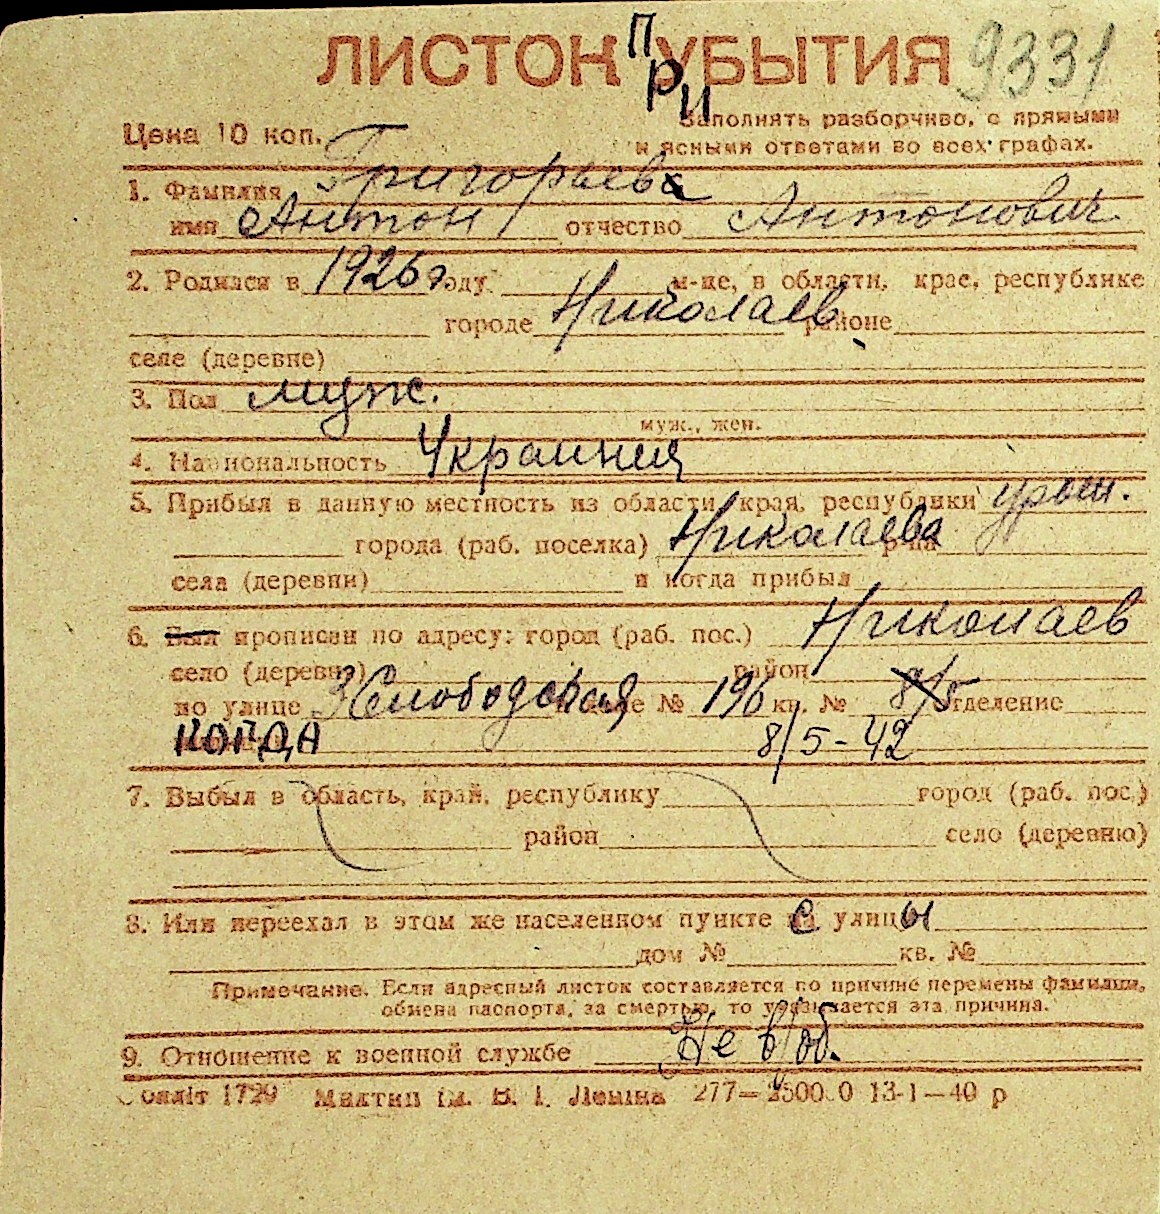 ЛИСТОК ПРИУБЫТИЯ 9331
Цена 10 коп.
Заполнять разборчиво, с прямыми
и ясными ответами во всех графах.
1. Фамилия Григорьев
имя Антон отчество Антонович
2. Родился в 1926 году м-це, в области, крае, республике
городе Николаев районе
селе (деревне)
3. Пол муж.
муж., жен.
4. Национальность Украинец
5. Прибыл в данную местность из области, края, республики урож.
города (раб. поселка) Николаева р-на
села (деревни) и когда прибыл
6. Был прописан по адресу: город (раб. пос.) Николаев
село (деревня) район
по улице 3 Слободская № 196 кв. № 8/5 отделение
КОГДА 8/5-42
7. Выбыл в область, край, республику город (раб. пос.)
район село (деревню)
8. Или переехал в этом же населенном пункте с улицы
дом № кв. №
Примечание. Если адресный листок составляется по причине перемены фамилии,
обмена паспорта, за смертью, то указывается эта причина.
9. Отношение к военной службе Не в/об.
1729 Миктип ім. В. І. Леніна 277—25000 13-1—40 р